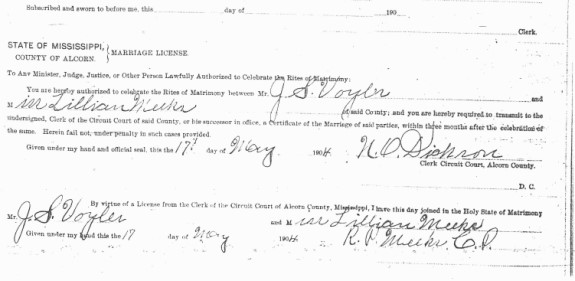 Subscribed and sworn to before me, this day of 190
Clerk.
STATE OF MISSISSIPPI,
COUNTY OF ALCORN.
MARRIAGE LICENSE.
To Any Minister, Judge, Justice, or Other Person Lawfully Authorized to Celebrate the Rites of Matrimony:
You are hereby authorized to celebrate the Rites of Matrimony between Mr. J. S. Voyler and
Miss Lillian Meeks of said County; and you are hereby required to transmit to the
undersigned, Clerk of the Circuit Court of said County, or his successor in office, a Certificate of the Marriage of said parties, within three months after the celebration of
the same. Herein fail not, under penalty in such cases provided.
Given under my hand and official seal, this the 17 day of May 1904. N. O. Dickson
Clerk Circuit Court, Alcorn County.
D. C.
By virtue of a License from the Clerk of the Circuit Court of Alcorn County, Mississippi, I have this day joined in the Holy State of Matrimony
Mr. J. S. Voyler and Miss Lillian Meeks
Given under my hand this the 17 day of May 1904 R. P. Meeks C. P.